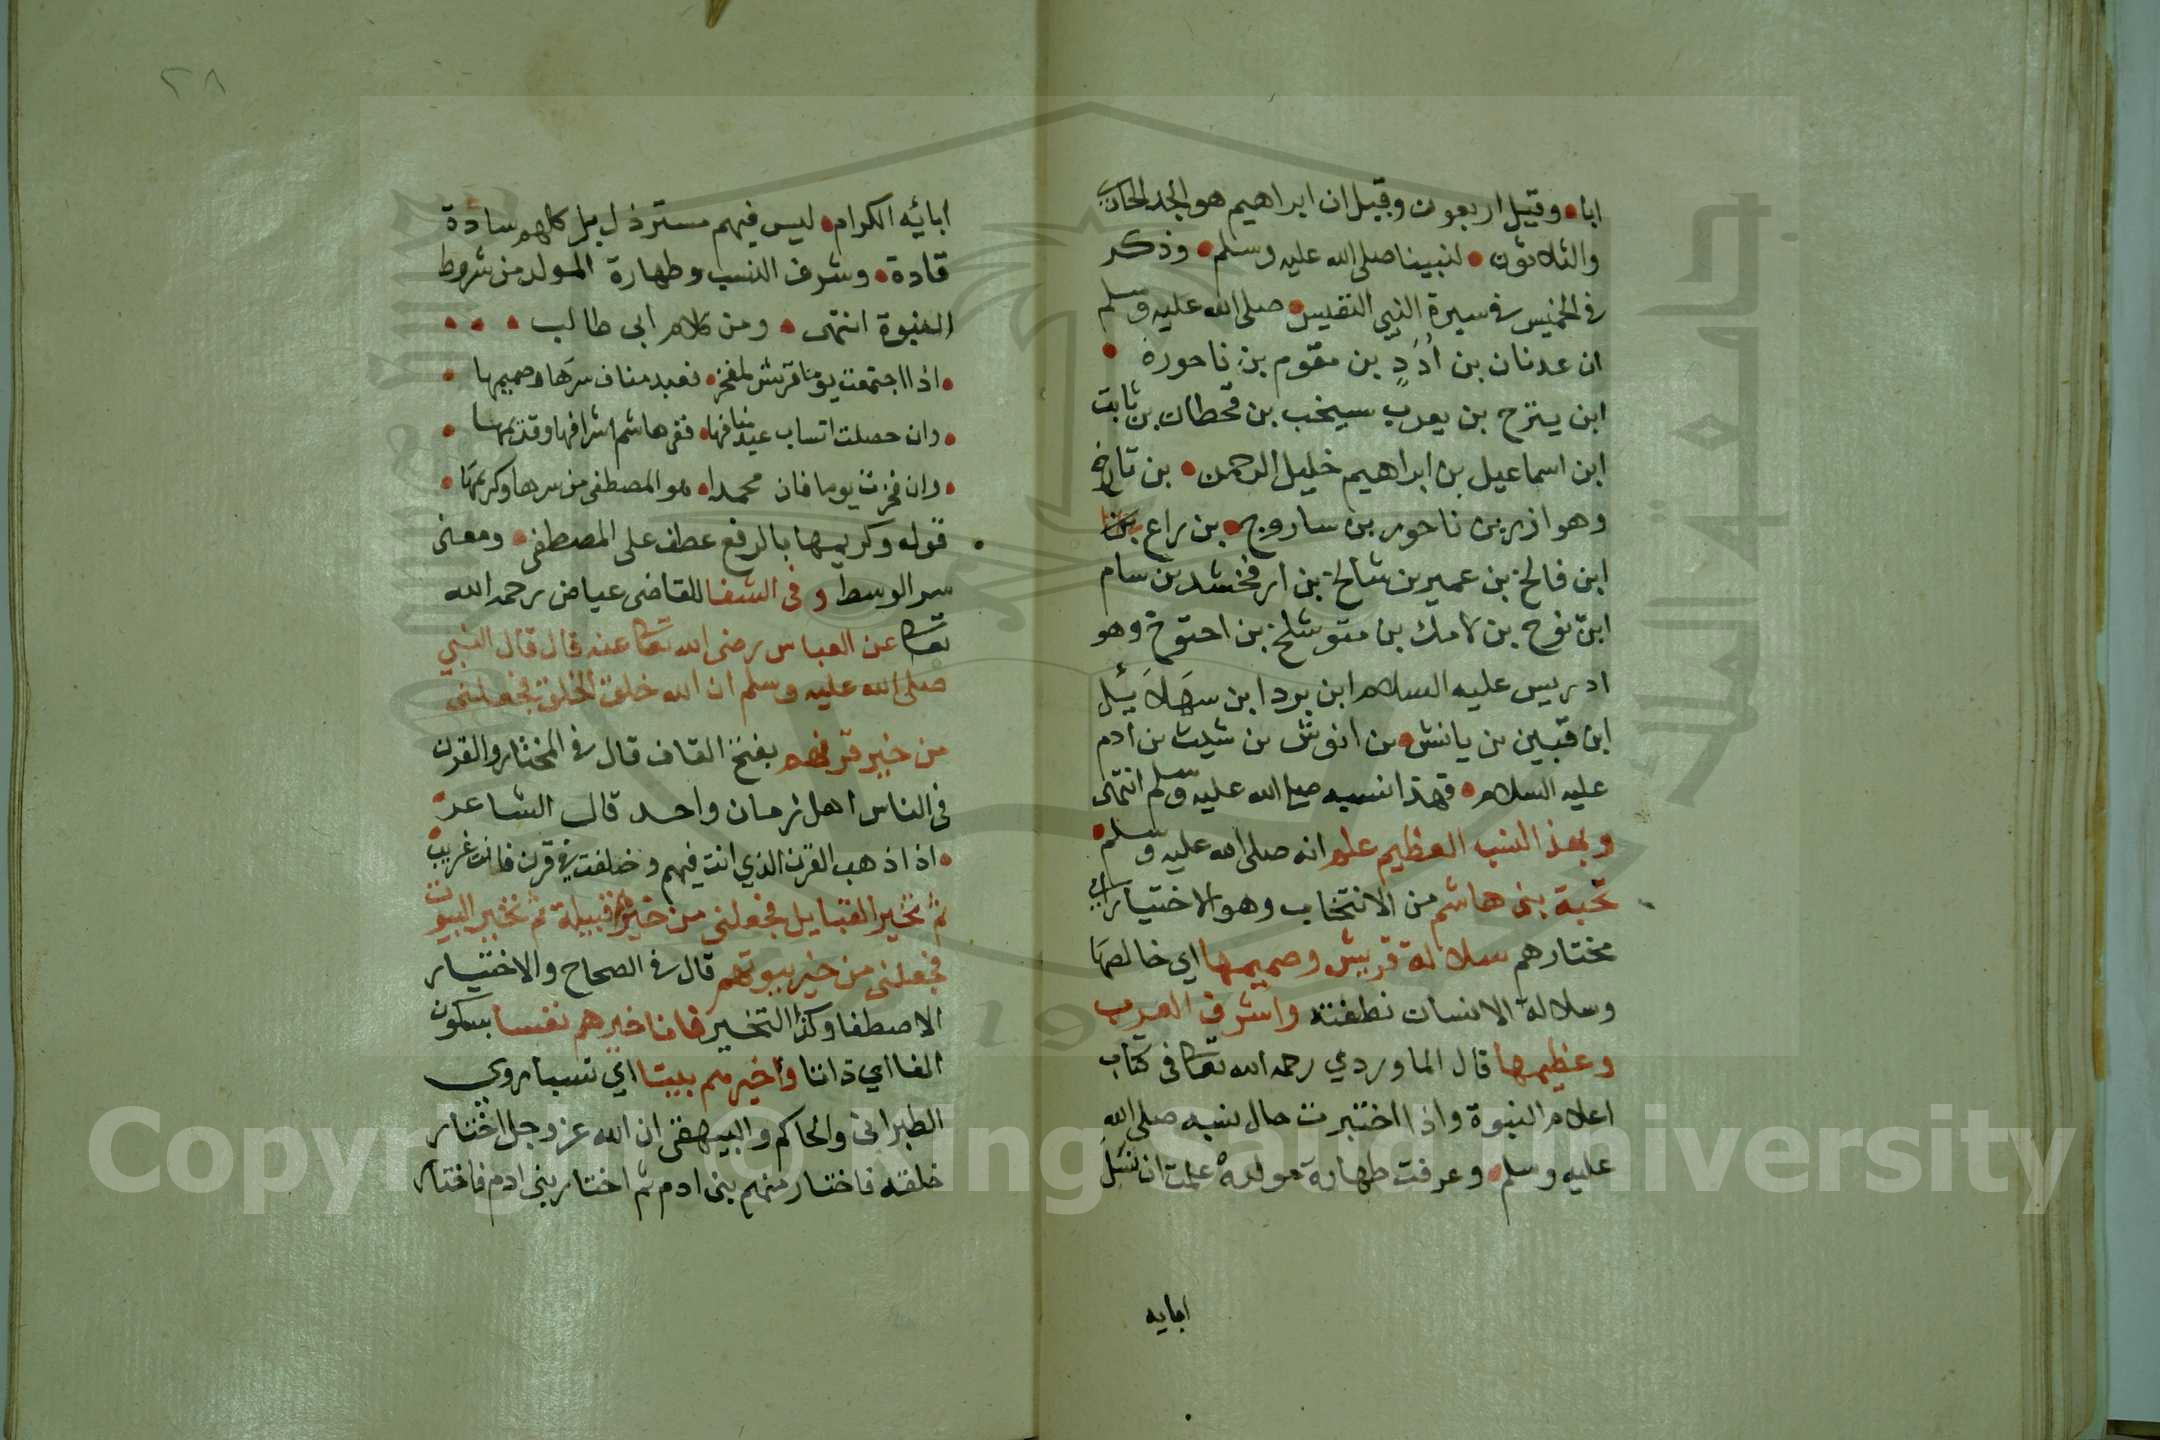 ابا وقيل اربعون وقيل ان ابراهيم هو الجد الحادي
والثلاثون لنبينا صلى الله عليه وسلم وذكر
في الخميس في سيرة النبي النفيس صلى الله عليه وسلم
ان عدنان بن أُدَدٍ بن مقوم بن ناحورة
ابن يتزح بن يعرب سيخب بن قحطان بن ثابت
ابن اسماعيل بن ابراهيم خليل الرحمن بن تارخ
وهو ازر بن ناحور بن ساروج بن راع
ابن فالخ بن عمير بن شالخ بن ارفخشد بن سام
ابن نوح بن لامك بن متوشلخ بن اخنوخ وهو
ادريس عليه السلام ابن يرد ابن مهلائيل
ابن قينن بن يانش بن انوش بن شيث بن ادم
عليه السلام فهذا نسبه صلى الله عليه وسلم انتهى
وبهذ النسب العظيم علم انه صلى الله عليه وسلم
نخبة بنى هاشم من الانتخاب وهو الاختيار اي
مختارهم سلالة قريش وصميمها اي خالصها
وسلالة الانسان نطفته واشرف العرب
وعظيمها قال الماوردي رحمه الله تعالى في كتاب
اعلام النبوة واذا اختبرت حال نسبه صلى الله
عليه وسلم وعرفت طهارة مولده علمت ان نسل
ابايه
٢٨
ابائه الكرام ليس فيهم مسترذل بل كلهم سادة
قادة وشرف النسب وطهارة المولد من شروط
النبوة انتهى ومن كلام ابى طالب
اذا اجتمعت يوما قريش لمفخر فعبد مناف سرها وصميمها
وان حصلت انساب عبد منافها ففى هاشم اشرافها وقديمها
وان فخرت يوما فان محمدا هو المصطفى من سرها وكريمها
قوله وكريمها بالرفع عطف على المصطفى ومعنى
سر الوسط وفى الشفا للقاضى عياض رحمه الله
تعالى عن العباس رضى الله تعالى عنه قال قال النبي
صلى الله عليه وسلم ان الله خلق الخلق فجعلنى
من خير قرنهم بفتح القاف قال في المختار والقرن
في الناس اهل زمان واحد قال الشاعر
اذا ذهب القرن الذي انت فيهم وخلفت في قرن فانت غريب
ثم تخير القبايل فجعلني من خير قبيلة ثم تخير البيوت
فجعلنى من خير بيوتهم قال في الصحاح والاختيار
الاصطفا وكذا التخير فانا خيرهم نفسا بسكون
الفا اي ذاتا وأخيرهم بيتا اي نسبا روي
الطبرانى والحاكم والبيهقى ان الله عز وجل اختار
خلقه فاختار منهم بنى ادم ثم اختار بنى ادم فاختار
Copyright © King Saud University